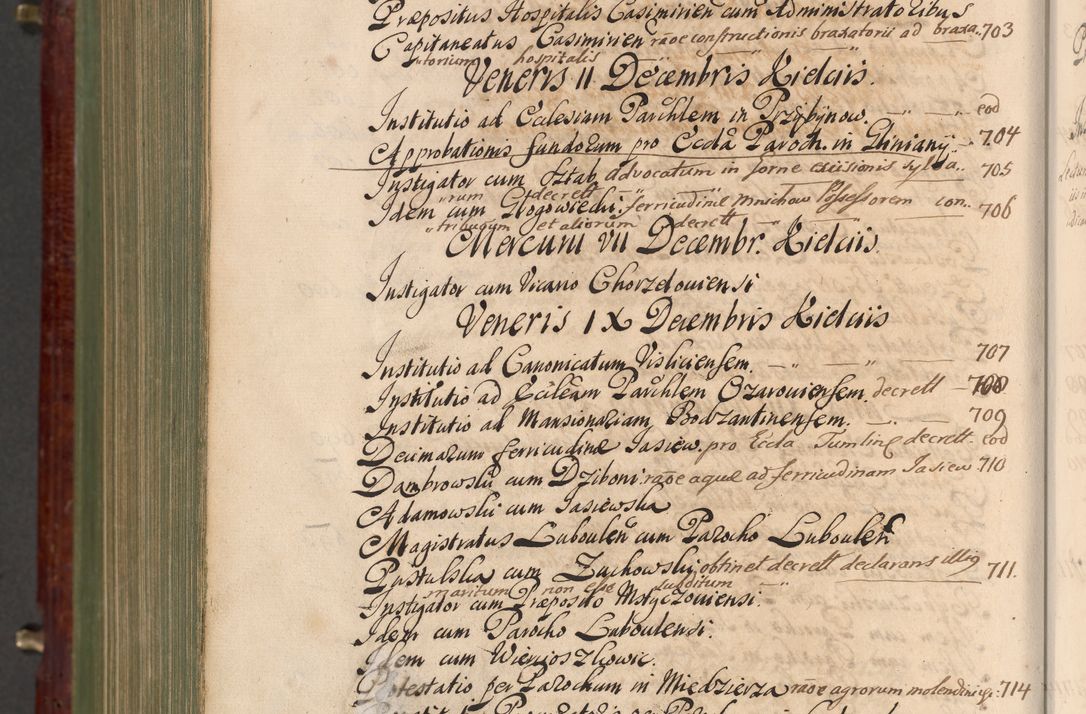 Præpositus Hospitalis Casimirien cum Administratoribus
Capitaneatus Casimirien raõe constructionis braxatorii ad braxa.. 703
"torium hospitalis
Veneris II Decembris Kielciis.
Institutio ad Ecclesiam Parchlem in Przybynow. — " — eod
Approbationis fundorum pro Eccla Paroch. in Gliniany.. 704
Instigator cum Sztab advocatum in forne excisionis sylva.. 705
"rum decrett — " —
Idem cum Głogowiecki ferricudinæ Mnichow Possessorem con.. 706
"tribuum et aliorum decrett — "
Mercurii VII Decembr. Kielciis.
Instigator cum Vicario Chorzelouiensi
Veneris IX Decembris Kielciis
Institutio ad Canonicatum Visliciensem. — " — " — 707
Institutio ad Eccleam Parchlem Ozarouiensem, decrett — 708
Institutio ad Mansionariam Bodzantinensem. — " — 709
Decimarum ferricudinæ Jasiew. pro Eccla Tumlinę decrett. eod
Dambrowski cum Dziboni raõe aquæ ad ferricudinam Jasiew 710
Adamowski cum Jasiewska
Magistratus Luboulen cum Parocho Luboulen
Pastulska cum Zuchowski obtinet decrett declarans illig 711.
maritum non esse subditum — " —
Instigator cum Præposito Motyczouiensi.
Idem cum Parocho Luboulensi.
Idem cum Wiercioszkowic.
Protestatio per Parochum in Miedzierza raõe agrorum molendini 714